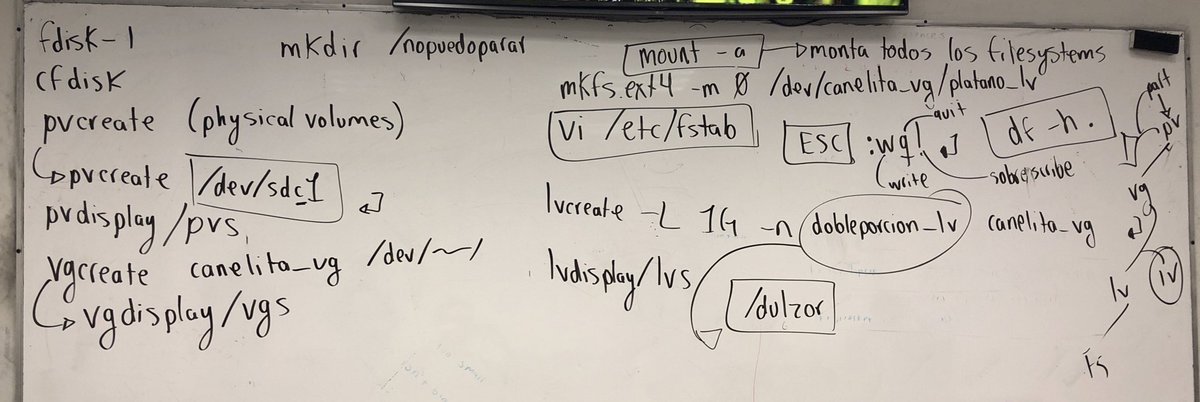 fdisk-l
cfdisk
pvcreate (physical volumes)
pvcreate /dev/sdc1
pvdisplay/pvs
vgcreate canelita_vg /dev/~~/
vgdisplay/vgs
mkdir /nopuedoparar
mount -a monta todos los filesystems
mkfs.ext4 -m 0 /dev/canelita_vg/platano_lv
vi /etc/fstab
ESC :wq!
quit
write
sobrescribe
df -h.
lvcreate -L 1G -n dobleporcion_lv canelita_vg
lvdisplay/lvs
/dulzor
part
pv
vg
lv
lv
fs